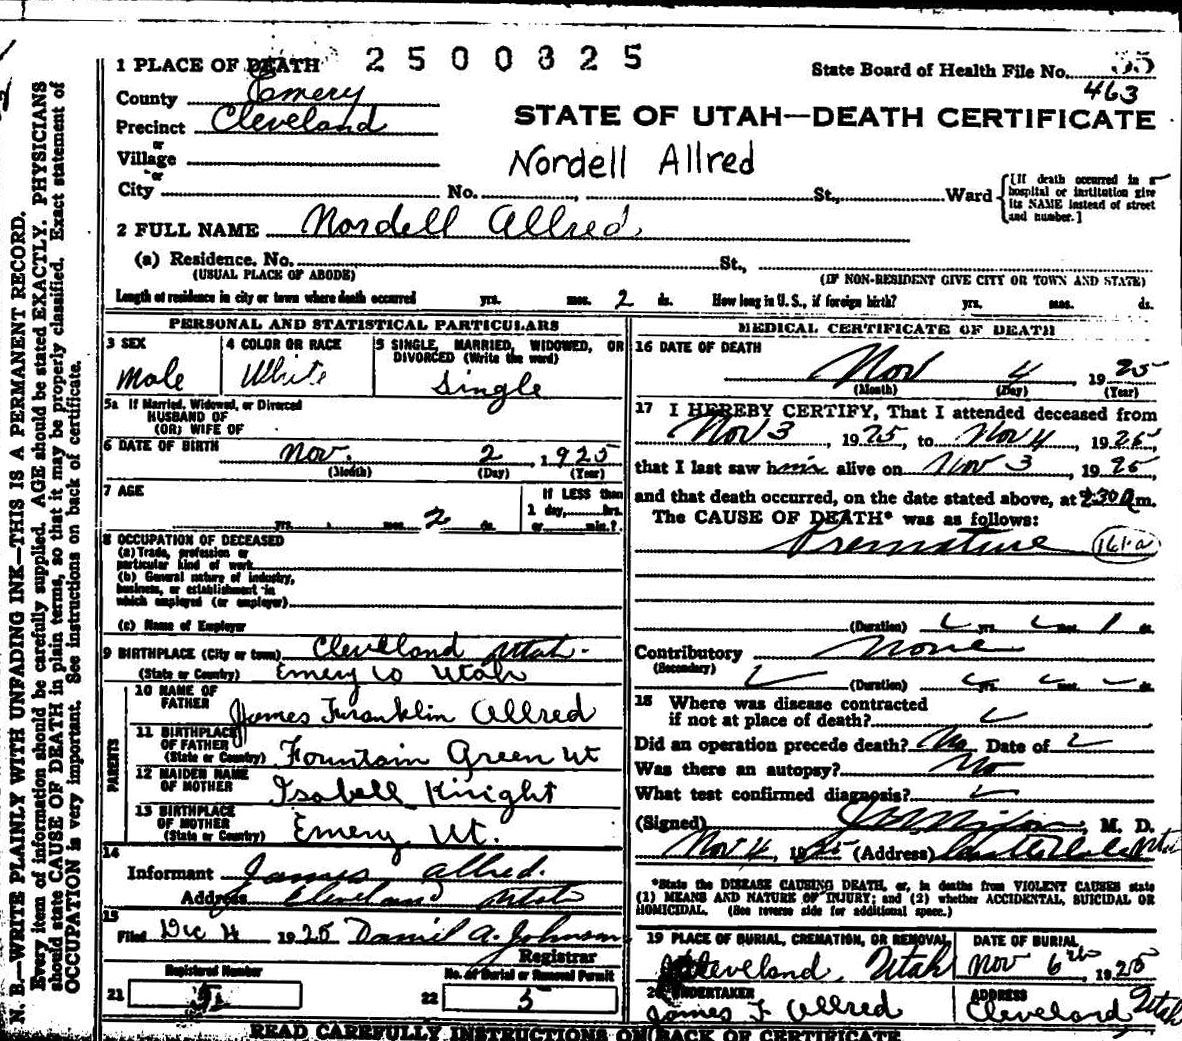 1 PLACE OF DEATH 2500325 State Board of Health File No. 55
463
County Emery
Precinct Cleveland
STATE OF UTAH—DEATH CERTIFICATE
or
Village
Nordell Allred
or
City No. St., Ward
[If death occurred in a
hospital or institution give
its NAME instead of street
and number.]
2 FULL NAME Nordell Allred
(a) Residence. No. St.,
(USUAL PLACE OF ABODE) (IF NON-RESIDENT GIVE CITY OR TOWN AND STATE)
Length of residence in city or town where death occurred yrs. mos. 2 ds. How long in U. S., if foreign birth? yrs. mos. ds.
PERSONAL AND STATISTICAL PARTICULARS
3 SEX 4 COLOR OR RACE 5 SINGLE, MARRIED, WIDOWED, OR
DIVORCED (Write the word)
Male White Single
5a If Married, Widowed, or Divorced
HUSBAND OF
(OR) WIFE OF
6 DATE OF BIRTH Nov. 2, 1925
(Month) (Day) (Year)
7 AGE If LESS than
1 day, hrs.
yrs. mos. 2 ds. or min.?
8 OCCUPATION OF DECEASED
(a) Trade, profession or
particular kind of work
(b) General nature of industry,
business, or establishment in
which employed (or employer)
(c) Name of Employer
9 BIRTHPLACE (City or town) Cleveland Utah.
(State or Country) Emery Co Utah
PARENTS
10 NAME OF
FATHER James Franklin Allred
11 BIRTHPLACE
OF FATHER
(State or Country) Fountain Green Ut
12 MAIDEN NAME
OF MOTHER Isabell Knight
13 BIRTHPLACE
OF MOTHER
(State or Country) Emery Ut.
14
Informant James Allred.
Address Cleveland Utah
15
Filed Dec 4 1925 Daniel A. Johnson
Registrar
Registered Number No. of Burial or Removal Permit
21 22 5
MEDICAL CERTIFICATE OF DEATH
16 DATE OF DEATH
Nov 4, 1925
(Month) (Day) (Year)
17 I HEREBY CERTIFY, That I attended deceased from
Nov 3, 1925, to Nov 4, 1925,
that I last saw him alive on Nov 3 1925,
and that death occurred, on the date stated above, at 2:30 a m.
The CAUSE OF DEATH* was as follows:
Premature 161-a
(Duration) yrs. mos. 1 ds.
Contributory None
(Secondary) (Duration) yrs. mos. ds.
18 Where was disease contracted
if not at place of death?
Did an operation precede death? No Date of
Was there an autopsy? No
What test confirmed diagnosis?
(Signed) M. D.
Nov 4, 1925 (Address) Utah
*State the DISEASE CAUSING DEATH, or, in deaths from VIOLENT CAUSES state
(1) MEANS AND NATURE OF INJURY; and (2) whether ACCIDENTAL, SUICIDAL OR
HOMICIDAL. (See reverse side for additional space.)
19 PLACE OF BURIAL, CREMATION, OR REMOVAL DATE OF BURIAL
Cleveland, Utah Nov 6th 1925
20 UNDERTAKER ADDRESS
James F Allred Cleveland Utah
READ CAREFULLY INSTRUCTIONS ON BACK OF CERTIFICATE
N. B.—WRITE PLAINLY WITH UNFADING INK—THIS IS A PERMANENT RECORD.
Every item of information should be carefully supplied. AGE should be stated EXACTLY. PHYSICIANS
should state CAUSE OF DEATH in plain terms, so that it may be properly classified. Exact statement of
OCCUPATION is very important. See instructions on back of certificate.